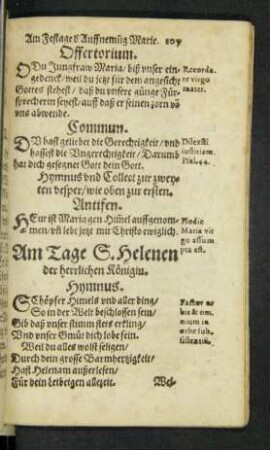 Am Festage d' Auffnemũg Marie. 107
Offertorium.
O Du Jungfraw Maria/ biß vnser ein-
gedenck/ weil du jetz für dem angesicht
Gottes stehest/ daß du vnsere gütige Für-
sprecherin seyest/ auff daß er seinen zorn võ
vns abwende.
Recorda-
re virgo
mater.
Commun.
DV hast geliebet die Gerechtigkeit/ vnd
hassest die Vngerechtigkeit/ Darumb
hat dich gesegnet Gott dein Gott.
Dilexisti
iustitiam.
Psal. 44.
Hymnus vnd Collect zur zwey-
ten vesper/ wie oben zur ersten.
Antifen.
HEut ist Maria gen Him̃el auffgenom-
men/ vñ lebt jetz mit Christo ewiglich.
Hodie
Maria vir
go assum
pta est.
Am Tage S. Helenen
der herrlichen Königin.
Hymnus.
SChöpfer Himels vnd aller ding/
So in der Welt beschlossen sein/
Gib daß vnser stimm stets erkling/
Vnd vnser Gmüt dich lobe fein.
Weil du alles wolst seligen/
Durch dein grosse Barmhertzigkeit/
Hast Helenam außerlesen/
Für dein Leibeigen allezeit.
Factor or
bis & om
nium in
orbe
Wel-